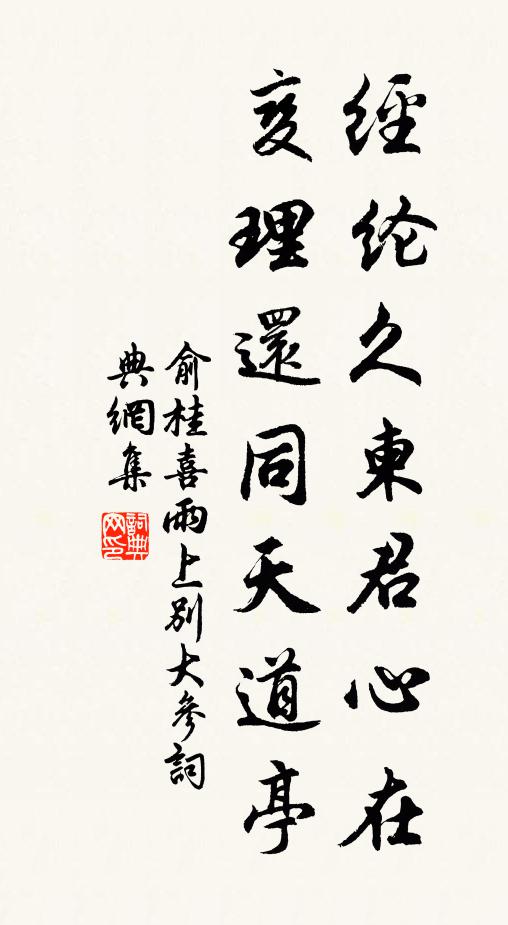 經纶久東君心在
变理還同天道亭
俞桂喜雨上别大參詞
典網集
詞典
网印